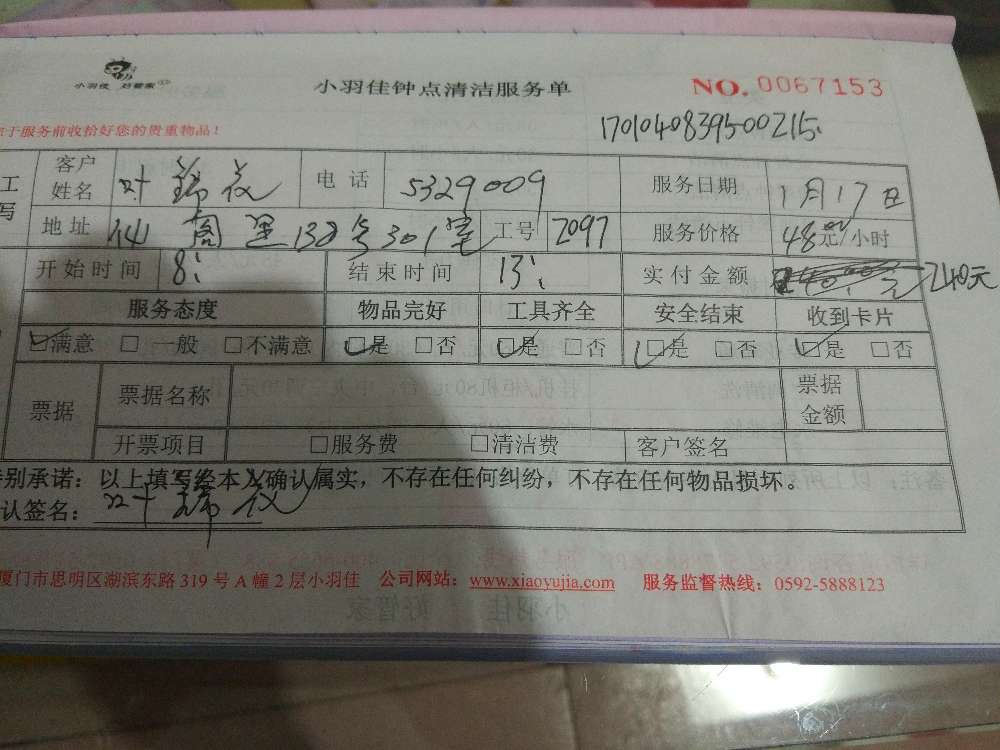 小羽佳 好管家
小羽佳钟点清洁服务单
NO. 0067153
于服务前收拾好您的贵重物品！
1701040839500215
客户姓名 叶 电话 5329009 服务日期 1月17日
地址 仙阁里138号301室 工号 2097 服务价格 48元/小时
开始时间 8: 结束时间 13: 实付金额 240元
服务态度 物品完好 工具齐全 安全结束 收到卡片
☑满意 □一般 □不满意 ☑是 □否 ☑是 □否 ☑是 □否 ☑是 □否
票据 票据名称 票据金额
开票项目 □服务费 □清洁费 客户签名
别承诺：以上填写经本人确认属实，不存在任何纠纷，不存在任何物品损坏。
认签名：叶
厦门市思明区湖滨东路 319 号 A 幢 2 层小羽佳 公司网站：www.xiaoyujia.com 服务监督热线：0592-5888123